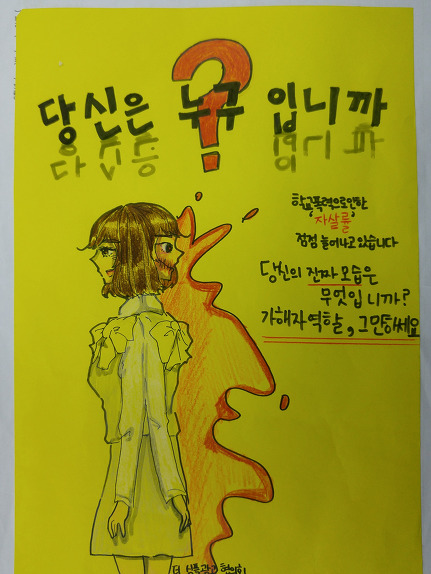 당신은 누구 입니까
?
학교폭력으로인한
'자살률'
점점 늘어나고 있습니다
당신의 진짜 모습은
무엇입니까?
가해자역할, 그만하세요